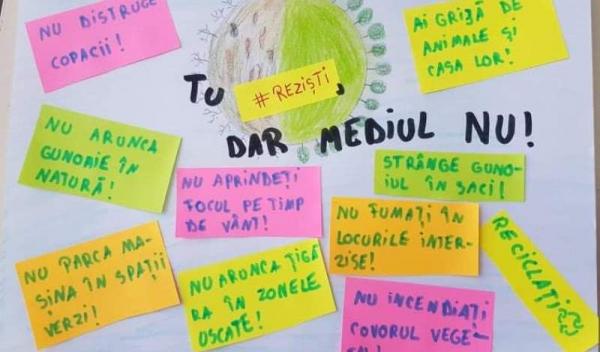 NU DISTRUGE
COPACII!
AI GRIJĂ DE
ANIMALE ȘI
CASA LOR!
TU #REZIȘTI,
DAR MEDIUL NU!
NU ARUNCA
GUNOAIE ÎN
NATURĂ!
NU APRINDEȚI
FOCUL PE TIMP
DE VÂNT!
STRÂNGE GUNO-
IUL ÎN SACI!
NU FUMAȚI ÎN
LOCURILE INTER-
ZISE!
RECICLAȚI
NU PARCA MA-
ȘINA ÎN SPAȚII
VERZI!
NU ARUNCA ȚIGA
RA ÎN ZONELE
USCATE!
NU INCENDIAȚI
COVORUL VEGE-